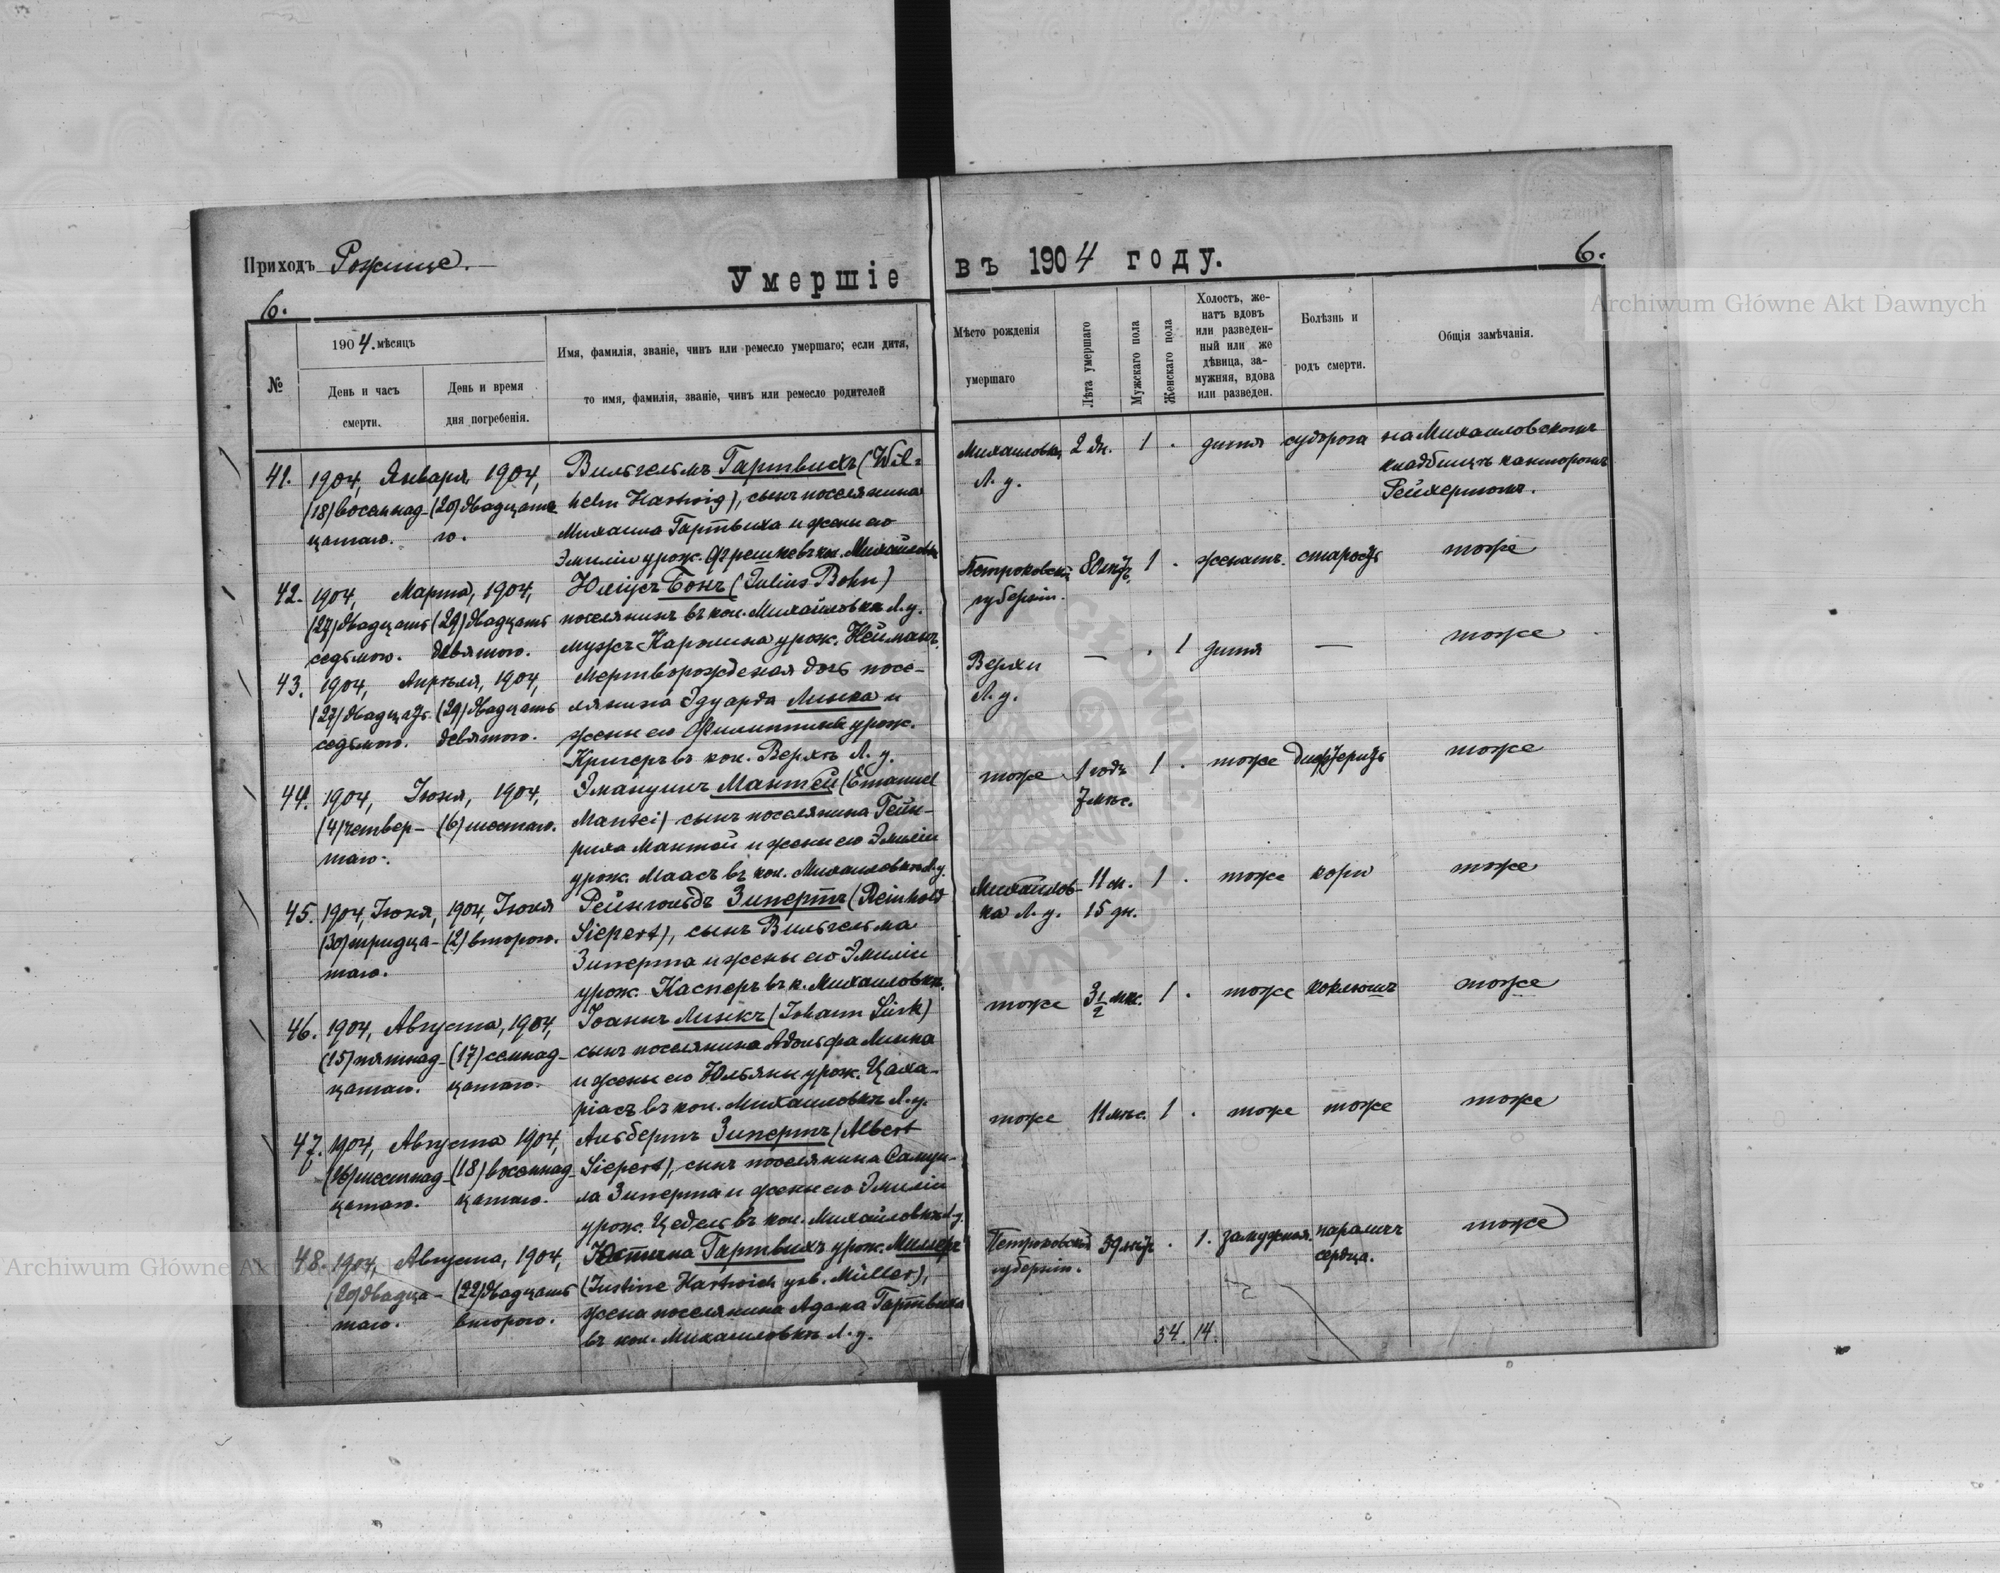 Приходъ Рожище.
Умершіе
въ 1904 году.
6.
6.
№
1904. мѣсяцъ
День и часъ
смерти.
День и время
дня погребенія.
Имя, фамилія, званіе, чинъ или ремесло умершаго; если дитя,
то имя, фамилія, званіе, чинъ или ремесло родителей
Мѣсто рожденія
умершаго
Лѣта умершаго
Мужскаго пола
Женскаго пола
Холостъ, же-
натъ вдовъ
или разведен-
ный или же
дѣвица, за-
мужняя, вдова
или разведен.
Болѣзнь и
родъ смерти.
Общія замѣчанія.
41. 1904, Января, 1904,
(18) восемнад- (20) двадцата-
цатаго. го.
Вильгельмъ Гартвихъ (Wil=
helm Hartwig), сынъ поселянина
Михаила Гартвиха и жены его
Эмиліи урож. Фрешке въ кол. Михайловкѣ
Михаиловка 2 дн. 1 . дитя судорога на Михаиловскомъ
Л. у. кладбищѣ канторомъ
Рейхертомъ.
42. 1904, Марта, 1904,
(27) двадцать (29) двадцать
седьмого. девятого.
Юліусъ Бонъ (Julius Bohn)
поселянинъ въ кол. Михайловкѣ Л. у.
мужъ Каролина урож. Нейманъ.
Петроковской 80 лѣтъ. 1 . женатъ. старость тоже
губерніи.
43. 1904, Апрѣля, 1904,
(27) двадцать (29) двадцать
седьмого. девятого.
Мертворожденая дочь посе-
лянина Эдуарда Линка и
жены его Филиппины урож.
Кригеръ въ кол. Верхѣ Л. у.
Верхи — . 1 дитя — тоже
Л. у.
44. 1904, Іюня, 1904,
(4) четвер- (6) шестаго.
таго.
Эмануилъ Мантей (Emanuel
Mantei) сынъ поселянина Гейн-
риха Мантей и жены его Эмиліи
урож. Маасъ въ кол. Михаиловкѣ Л. у.
тоже 1 годъ 1 . тоже дифтеритъ тоже
7 мѣс.
45. 1904, Іюня, 1904, Іюля
(30) тридца- (2) второго.
таго.
Рейнгольдъ Зипертъ (Reinhold
Siepert), сынъ Вильгельма
Зиперта и жены его Эмиліи
урож. Касперъ въ к. Михаиловкѣ.
Михайлов- 11 м. 1 . тоже кори тоже
ка Л. у. 15 дн.
46. 1904, Августа, 1904,
(15) пятнад- (17) семнад-
цатаго. цатаго.
Іоганъ Линкъ (Johann Link)
сынъ поселянина Адольфа Линка
и жены его Юльяны урож. Цаха-
ріасъ въ кол. Михаиловкѣ Л. у.
тоже 3 1/2 мѣс. 1 . тоже коклюшъ тоже
47. 1904, Августа 1904,
(16) шестнад- (18) восемнад-
цатаго. цатаго.
Альбертъ Зипертъ (Albert
Siepert), сынъ поселянина Самуи-
ла Зиперта и жены его Эмиліи
урож. Цедель въ кол. Михайловкѣ Л. у.
тоже 11 мѣс. 1 . тоже тоже тоже
48. 1904, Августа, 1904,
(20) двадца- (22) двадцать
таго. второго.
Юстина Гартвихъ урож. Миллеръ
(Justine Hartwich geb. Müller),
жена поселянина Адама Гартвиха
въ кол. Михаиловкѣ Л. у.
Петроковской 39 лѣтъ . 1. замужняя. параличъ тоже
губерніи. сердца.
34. 14.
Archiwum Główne Akt Dawnych
Archiwum Główne Akt